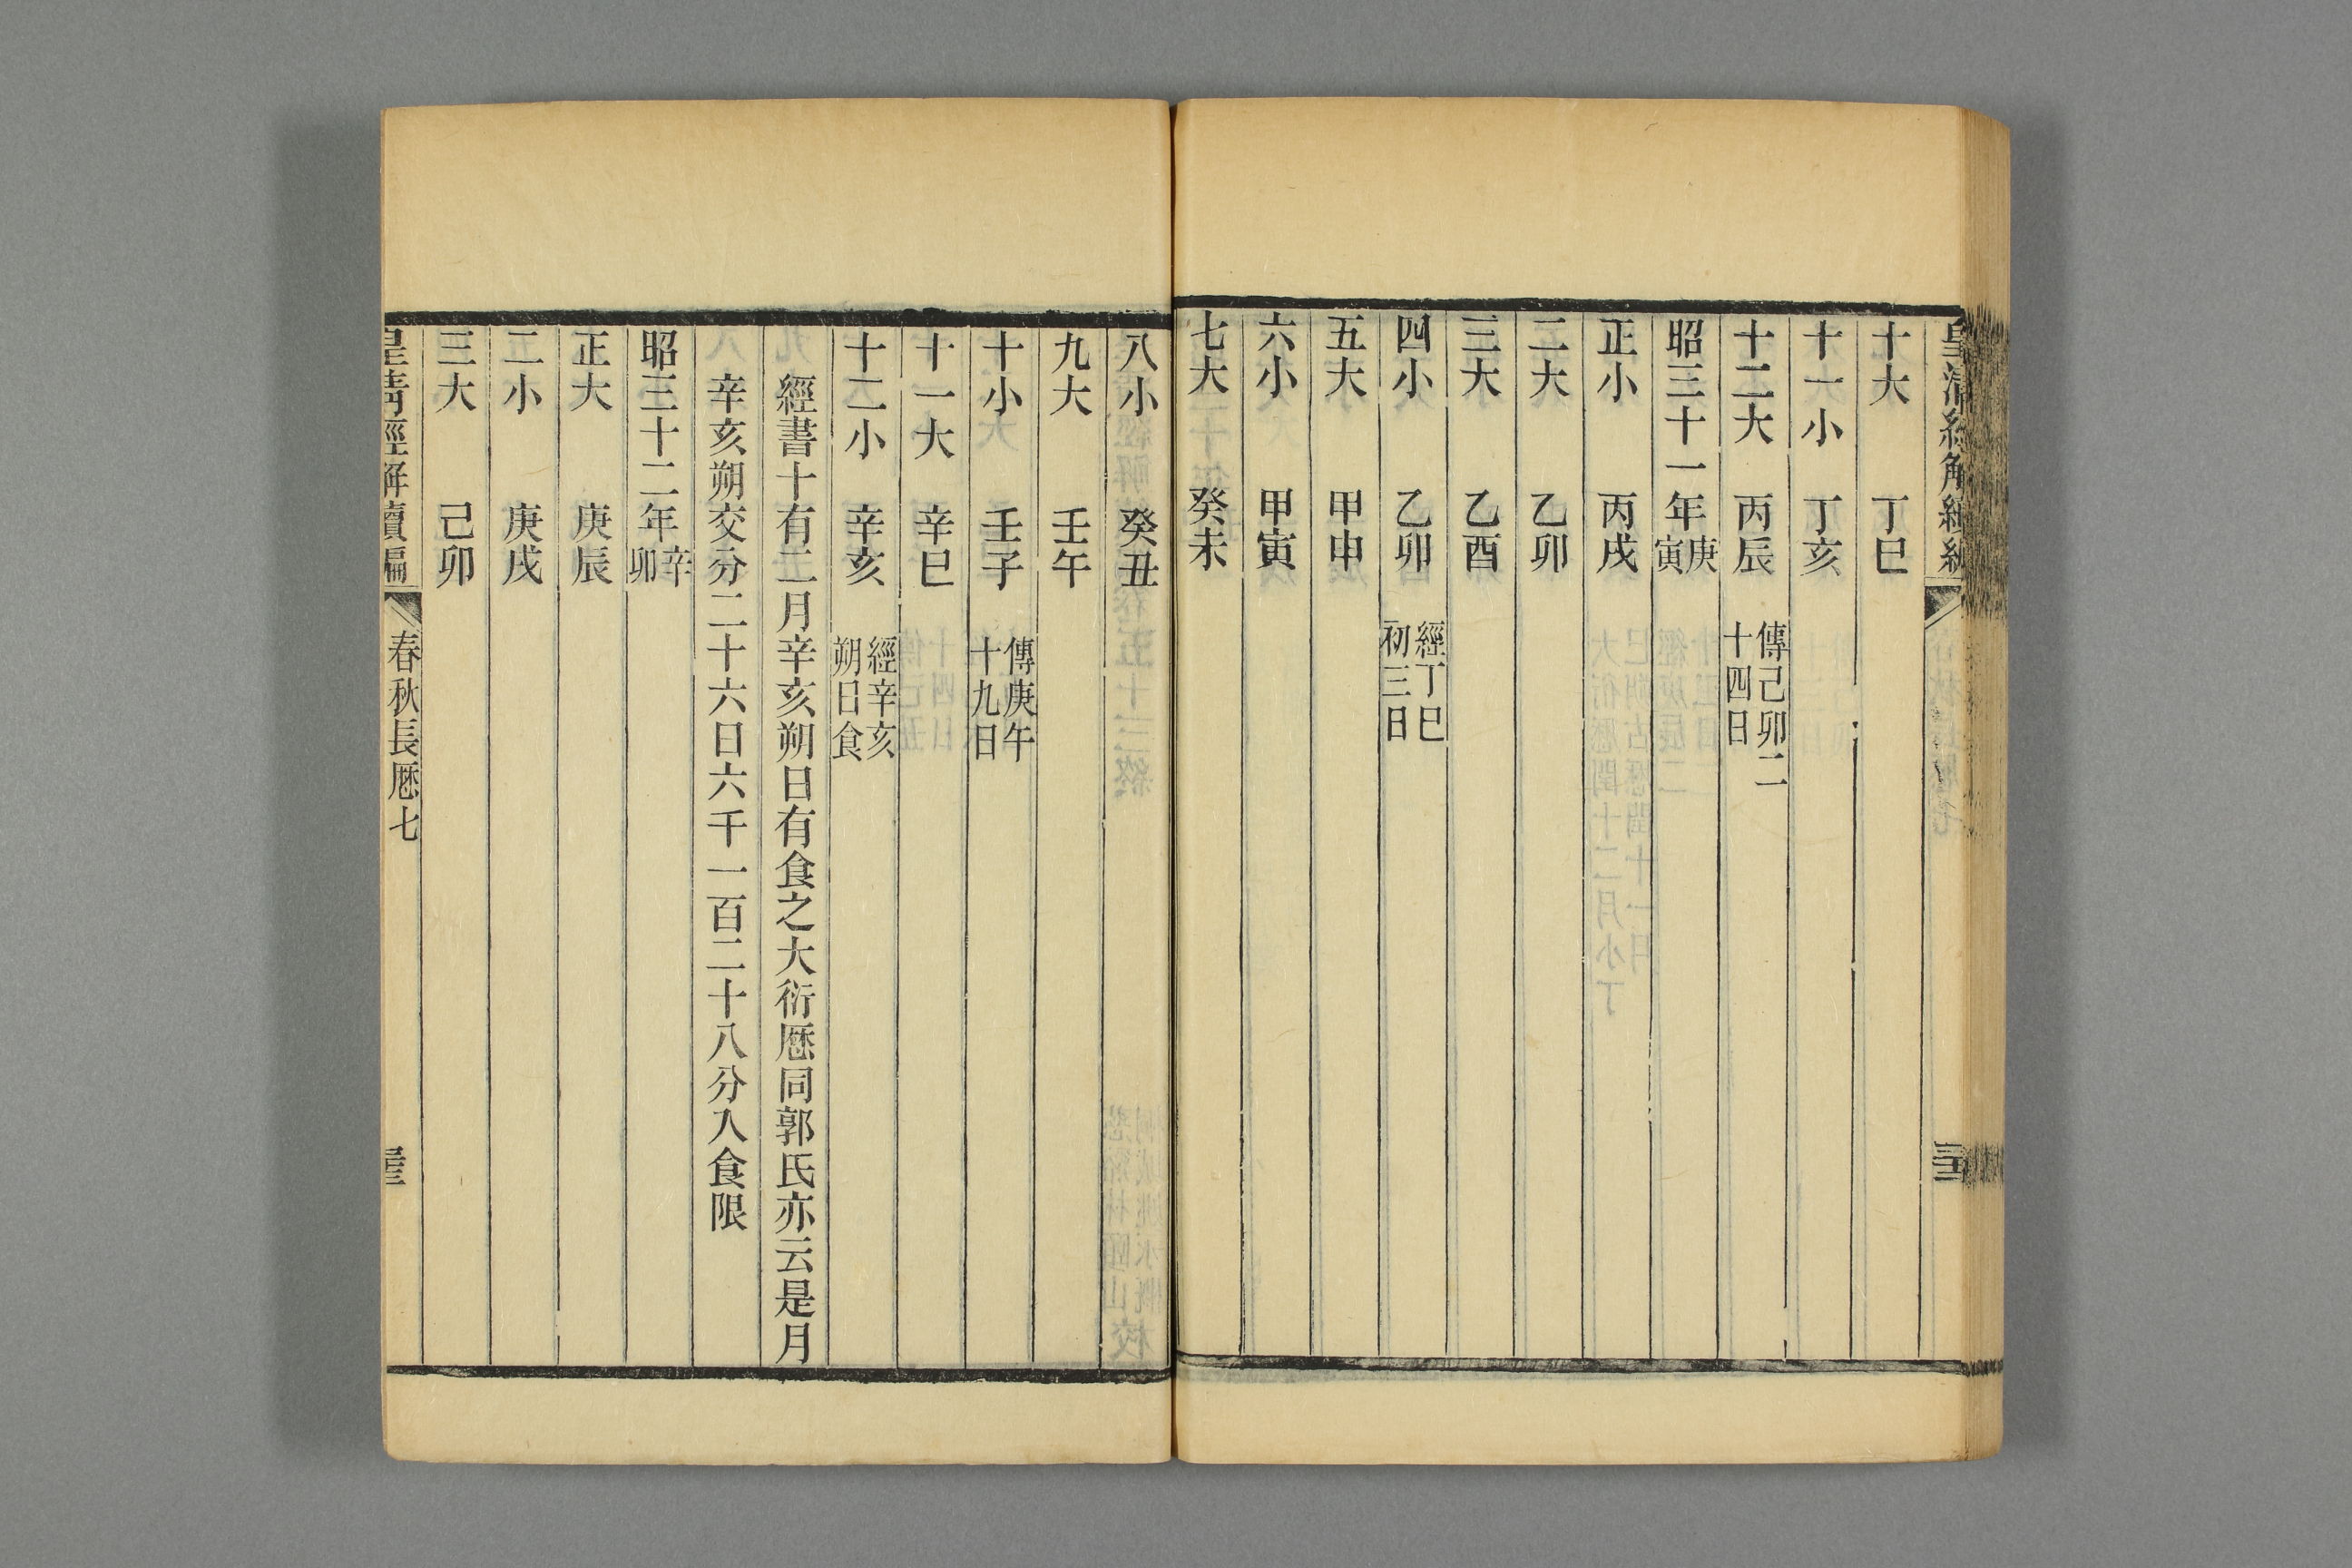 十大　丁巳
十一小　丁亥
十二大　丙辰　傳己卯二十四日
昭三十一年庚寅
正小　丙戌
二大　乙卯
三大　乙酉
四小　乙卯　經丁巳初三日
五大　甲申
六小　甲寅
七大　癸未
八小　癸丑
九大　壬午
十小　壬子　傳庚午十九日
十一大　辛巳
十二小　辛亥　經辛亥朔日食
經書十有二月辛亥朔日有食之大衍厯同郭氏亦云是月
辛亥朔交分二十六日六千一百二十八分入食限
昭三十二年辛卯
正大　庚辰
二小　庚戌
三大　己卯
皇清經解續編　春秋長厯七